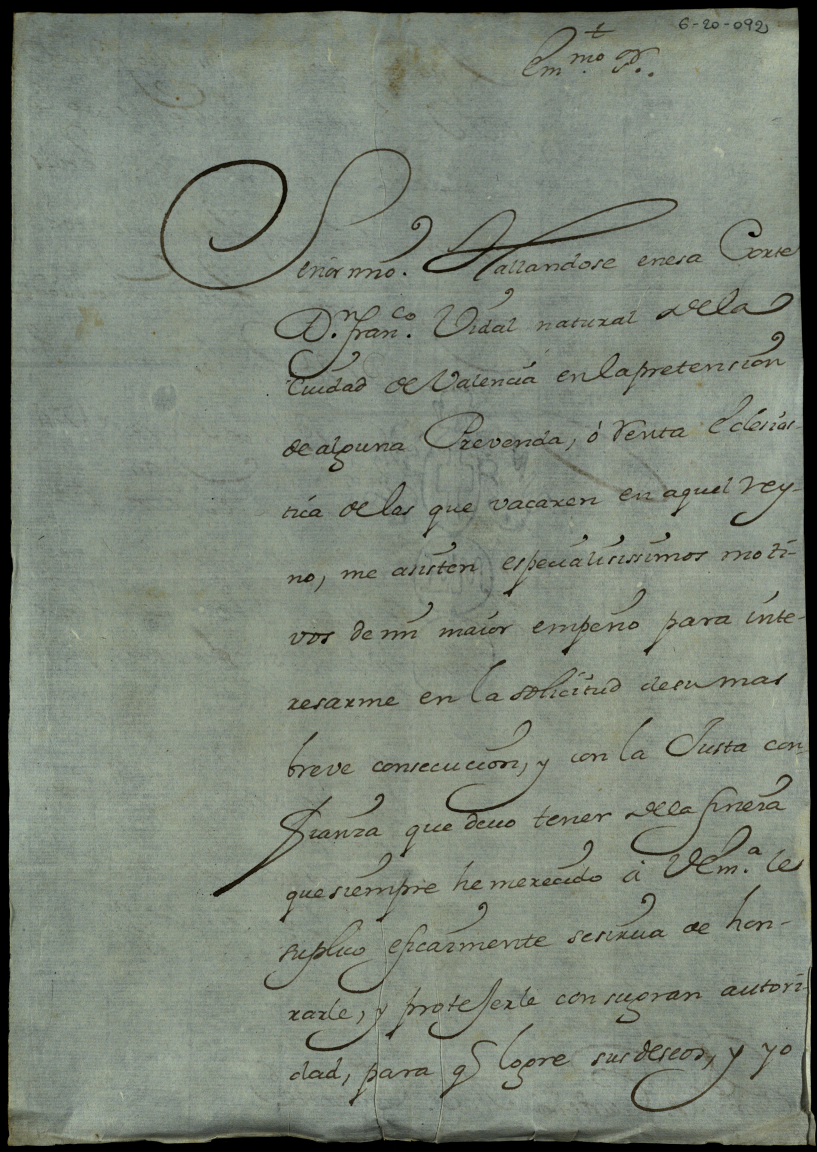 6-20-092
Em.mo Sr.
Señor mio. Hallandose enesa Corte
D.n Fran.co Vidal natural dela
Ciudad de Valencia en la pretension
de alguna Prevenda, ò Renta Eclesias-
tica de las que vacaren en aquel Rey-
no, me asisten especialisissimos moti-
vos de mi maior empeño para inte-
resarme en la solicitud desu mas
breve consecucion, y con la Justa con-
fianza que devo tener dela fineza
que siempre he merecido à VEm.a le
suplico eficazmente sesirua de hon-
rarle, y protejerle con sugran autori-
dad, para q logre sus deseos, y yo